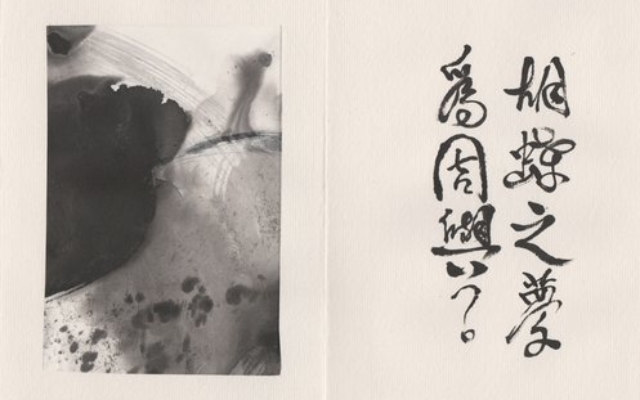 胡蝶之夢
爲周與?。